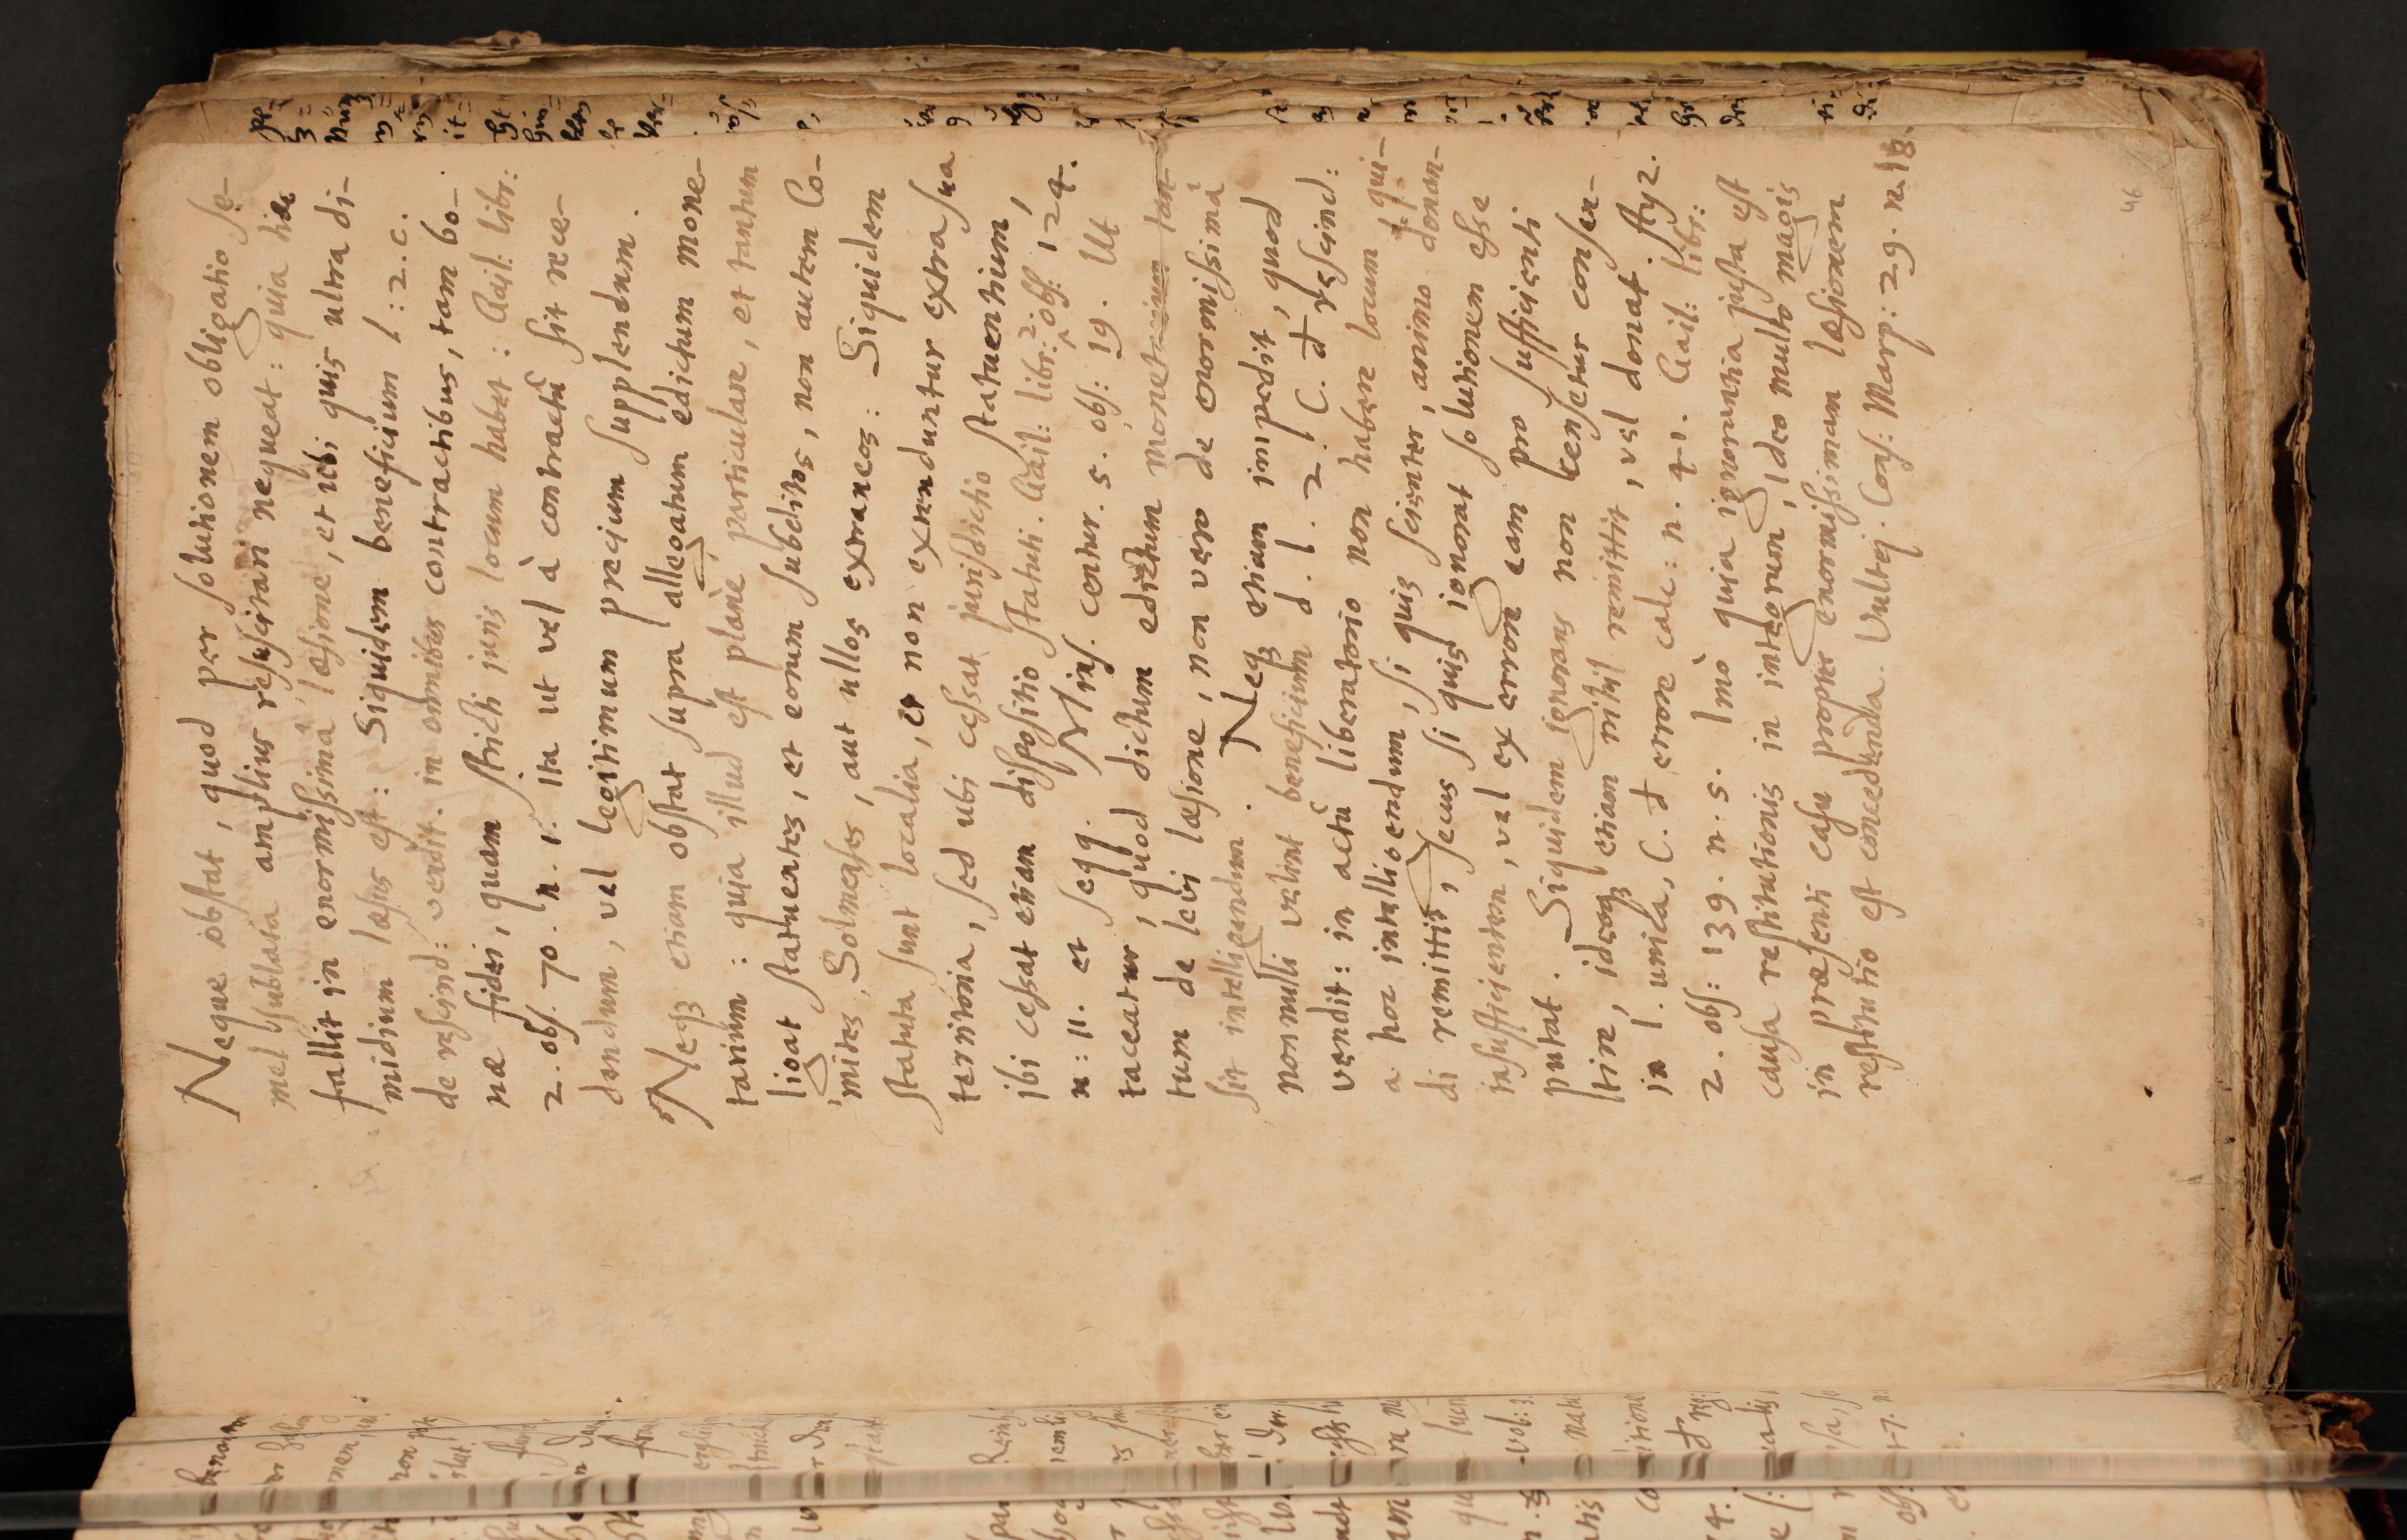 Neque obstat, quod per solutionem obligatio se-
mel sublata amplius resuscitari nequeat: quia hæc
fallit in enormissimâ læsione, et ubi quis ultra di-
midium læsus est: Siquidem beneficium l: 2. C.
de rescind: vendit. in omnibus contractibus, tam bo-
næ fidei, quam stricti juris locum habet: Gail: libr:
2. obs. 70. n. 1. Ita ut vel à contractû sit rece-
dendum, vel legitimum precium supplendum.
Neq3 etiam obstat supra allegatum edictum mone-
tarium: quia illud est planè particulare, et tantum
ligat statuentes, et eorum subditos, non autem Co-
mites Solmenses, aut ullos extraneos: Siquidem
statuta sunt localia, et non extenduntur extra sua
territoria, sed ubi cessat jurisdictio statuentium,
ibi cessat etiam dispositio statuti. Gail: libr: 2. obs: 124.
n: 11. et seqq. Mins. centur. 5. obs: 19. Ut
taceatur, quod dictum edictum monetarium tan-
tum de levi læsione, non verò de enormissimâ
sit intelligendum. Neq3 etiam impedit, quod
nonnulli velint beneficium d. l. 2. C. d rescind:
vendit: in actû liberatorio non habere locum qui-
a hoc intelligendum, si quis scienter, animo donan-
di remittit, secus si quis ignorat solutionem esse
insufficientem, vel ex errore eam pro sufficienti
putat. Siquidem ignorans non censetur consen-
tire, ideoq3 etiam nihil remittit, vel donat.
in l. unica, C. d errore calc: n. 41. Gail: libr:
2. obs: 139. n. 5. Imò quia ignorantia justa est
causa restitutionis in integrum, ideo multò magis
in præsenti casu propter enormissimam læsionem
restitutio est concedenda. Vultej. Cons: Marp: 29. n. 18.
46